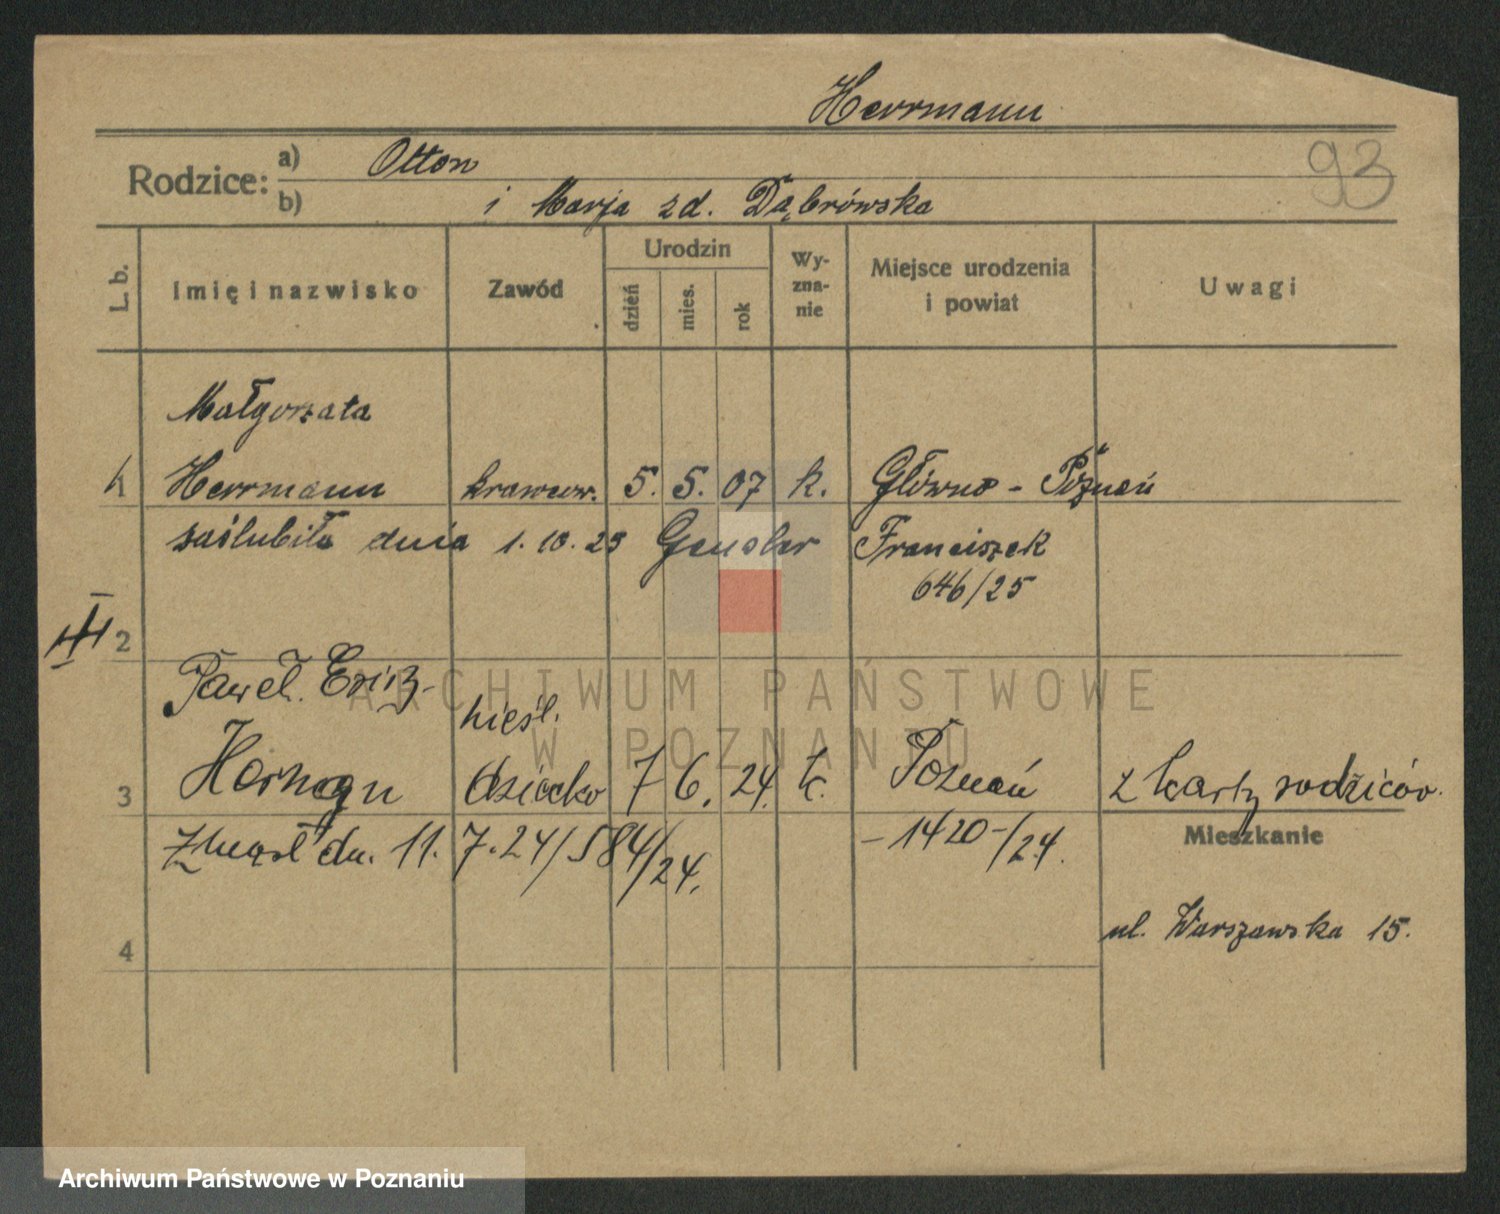 Herrmann
93
Rodzice: a) Otton
b) i Marja zd. Dąbrówska
L. b.
Imię i nazwisko
Zawód
Urodzin
dzień
mies.
rok
Wy-
zna-
nie
Miejsce urodzenia
i powiat
Uwagi
Małgorzata
Herrmann krawcow. 5. 5. 07 k. Główno - Poznań
zaślubiła dnia 1.10.25 Gensler Franciszek
646/25
2
Paweł. Eryk
nieśl.
3 Hermann dziecko 7 6. 24. k. Poznań z karty rodziców.
zmarł dn. 11. 7.24/584/24. -1420-/24.
Mieszkanie
4
ul. Warszawska 15.
ARCHIWUM PAŃSTWOWE
W POZNANIU
Archiwum Państwowe w Poznaniu